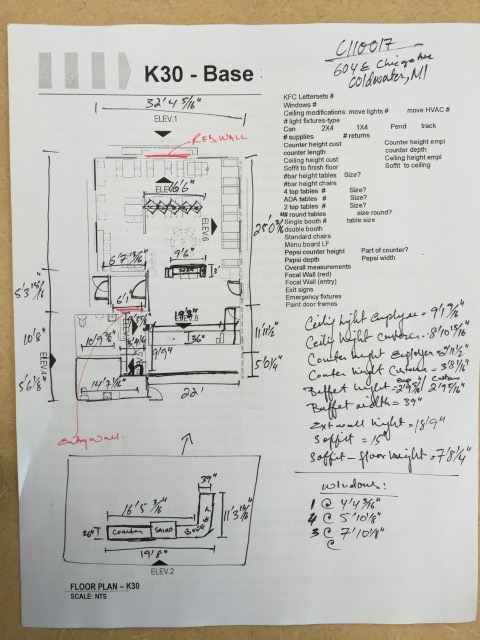 C110017
604 E Chicago Ave
Coldwater, MI
K30 - Base
32' 4 5/16"
ELEV.1
RED WALL
KFC Lettersets #
Windows #
Ceiling modifications: move lights # move HVAC #
# light fixtures-type
Can 2X4 1X4 Pend track
# supplies # returns
Counter height cust Counter height empl
counter length counter depth
Ceiling height cust Ceiling height empl
Soffit to finish floor Soffit to ceiling
#bar height tables Size?
#bar height chairs
4 top tables # Size?
ADA tables # Size?
2 top tables # Size?
round tables size round?
Single booth # table size
double booth
Standard chairs
Menu board LF
Pepsi counter height Part of counter?
Pepsi depth Pepsi width
Overall measurements
Focal Wall (red)
Focal Wall (entry)
Exit signs
Emergency fixtures
Paint door frames
6'6"
ELEV.6
9'6"
3'
6'1"
5'3 15/16"
10'8"
5'6 1/8"
ELEV.4
10'9 3/8"
36"
9'9"
11'11 1/2"
5'0 1/4"
14'7 1/16"
22'
Entry Wall
Ceiling hight Employee = 9'1 9/16"
Ceiling hight Customer = 8'10 15/16"
Counter hight Employee = 2'11 1/2"
Counter hight Customer = 3'8 1/16"
Buffet hight =
Buffet width = 39"
Ext wall hight = 18'9"
Soffit = 15"
Soffit - floor height = 7'8 1/4"
Windows:
1 @ 4'4 3/16"
4 @ 5'10 1/8"
3 @ 7'10 1/8"
@
39"
16' 5 3/16"
11'3 15/16"
30"
Counter
SALAD
19'8"
ELEV.2
FLOOR PLAN – K30
SCALE: NTS